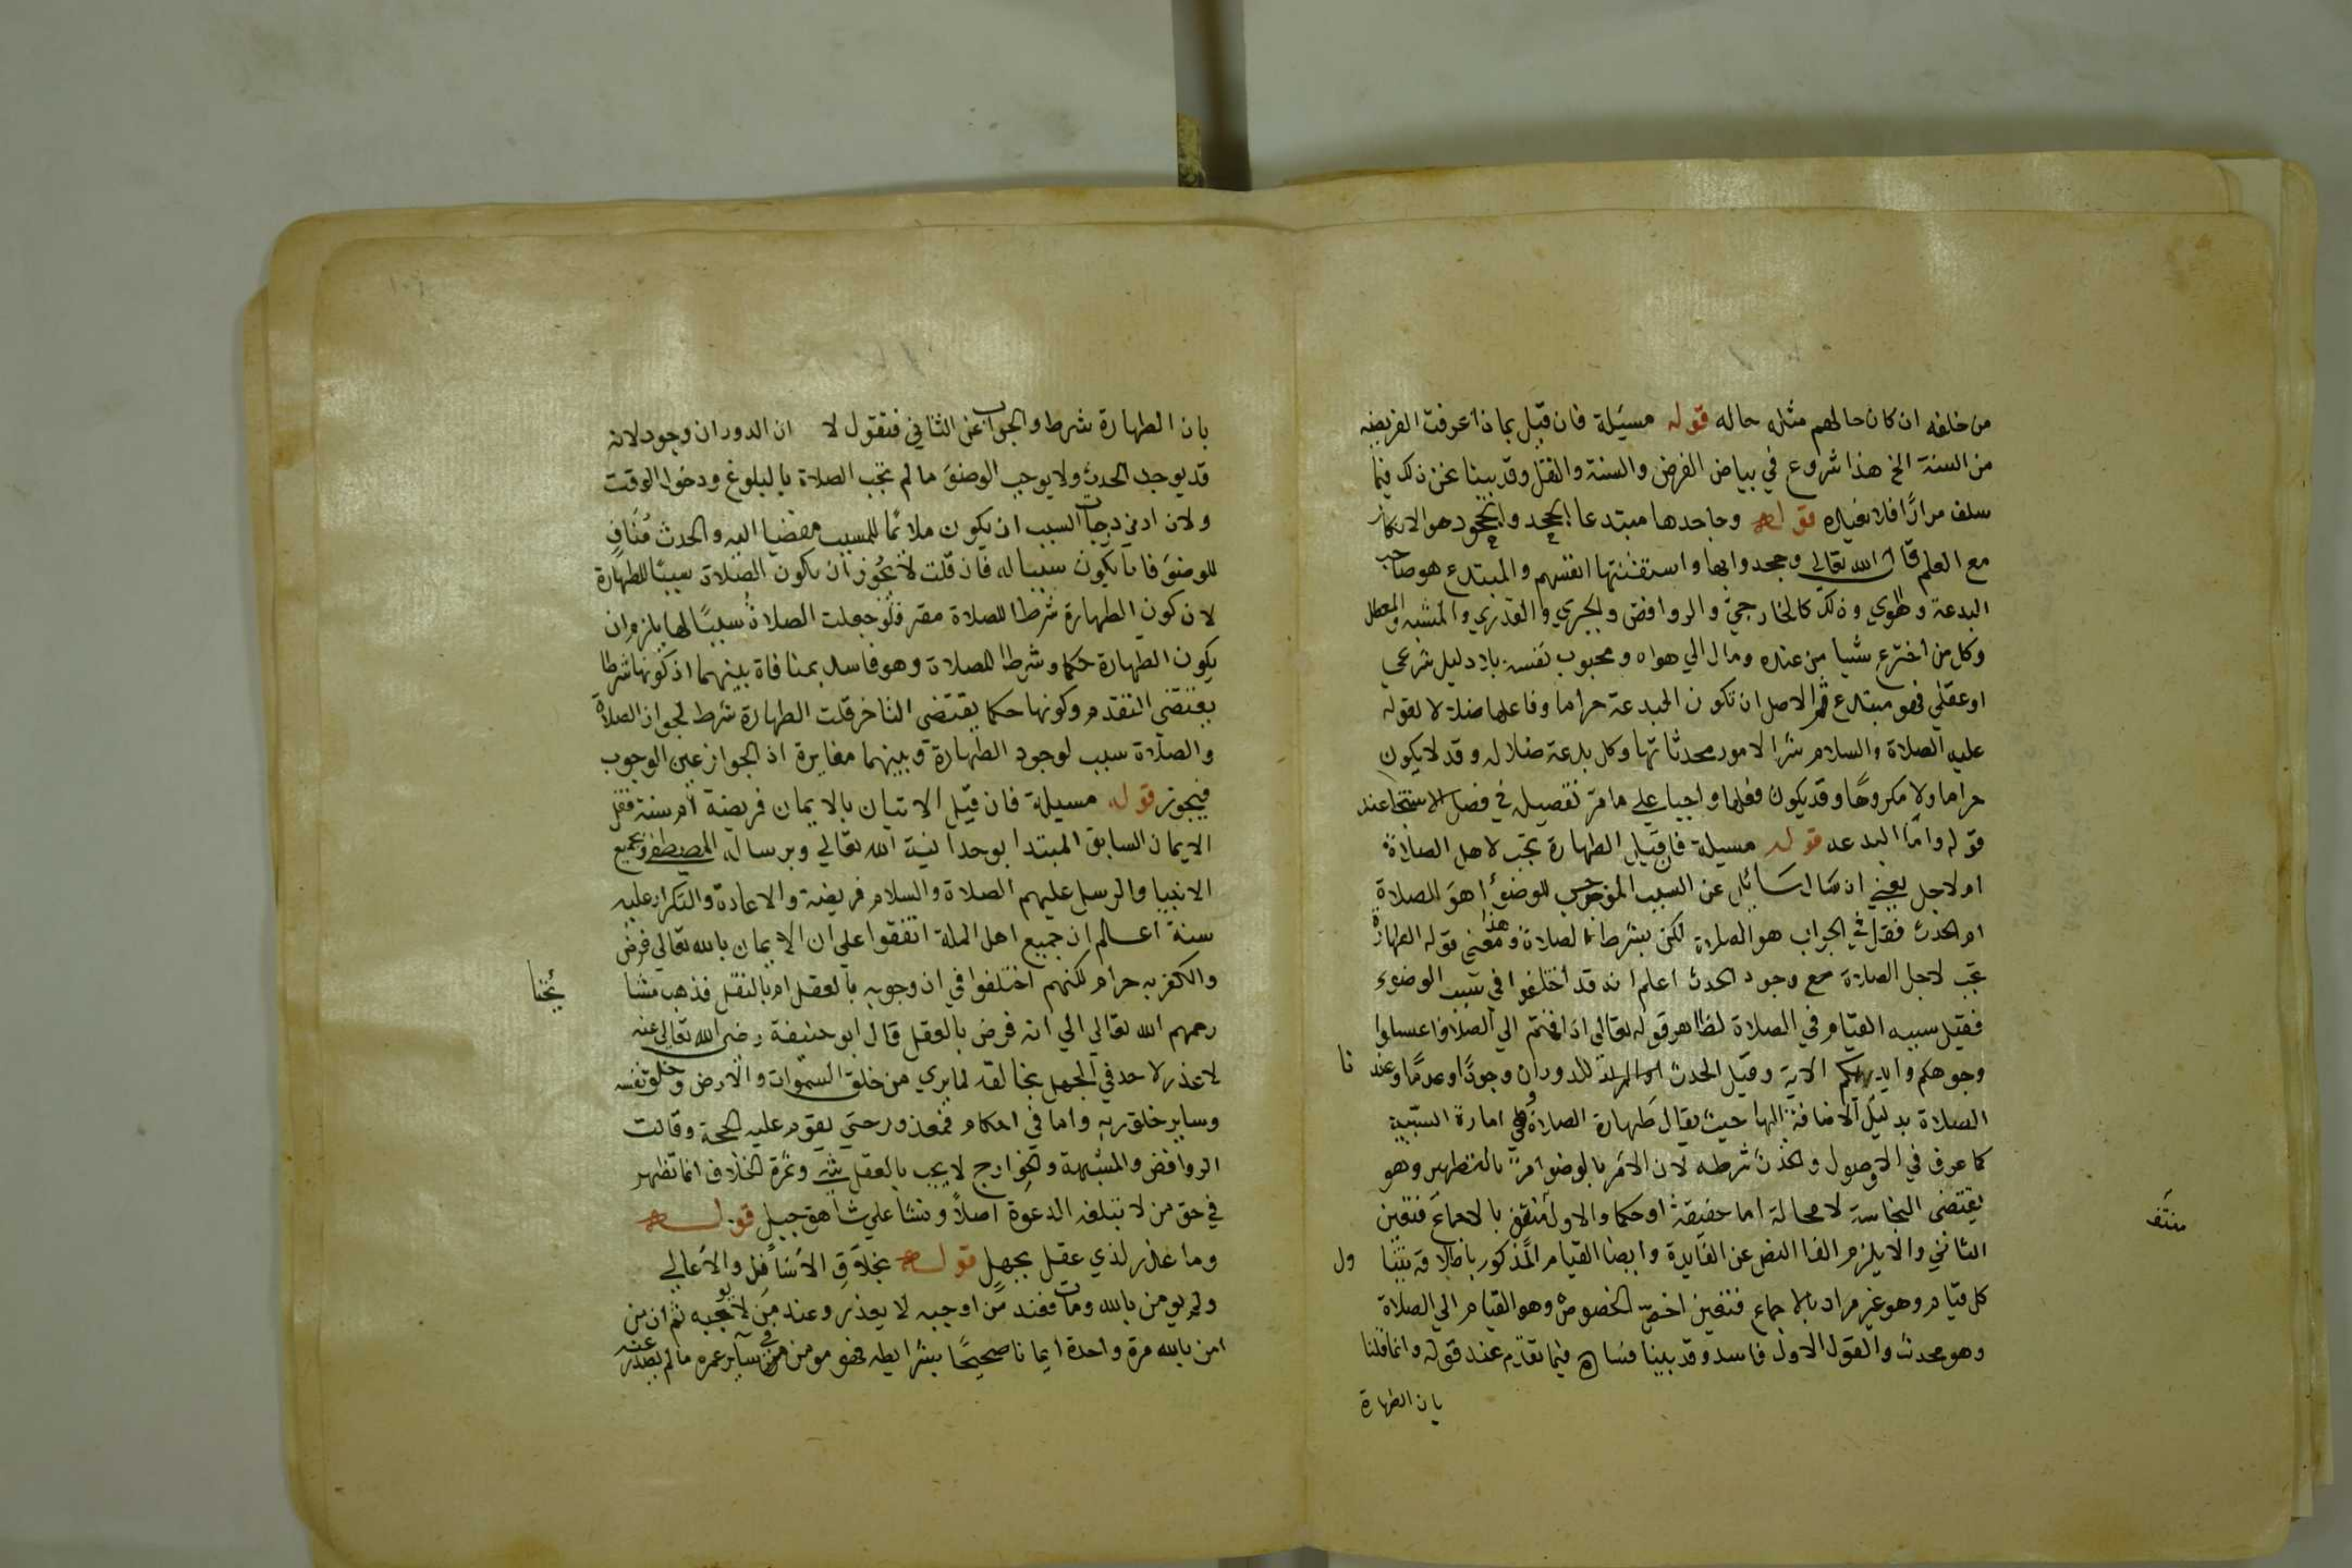 من خلفه ان كان حالهم مثله حاله قوله مسيلة فان قيل بماذا عرفت الفريضه
من السنة الخ هذا شروع في بياض الفرض والسنة والنفل وقد بينا نحن ذلك فيما
سلف مرارًا فلا نعيده قوله وجاحدها مبتدعا الجحد والجحود هو الانكار
مع العلم قال الله تعالي وجحدوا بها واستيقنتها انفسهم والمبتدع هو صاحب
البدعة والهوي وذلك كالخارجي والروافض والجبري والقدري والمشبه والمعطل
وكل من اخترع شيا من عنده ومال الي هواه ومحبوب نفسه بلا دليل شرعي
او عقلي فهو مبتدع ثم الاصل ان تكون البدعة حراما وفاعلها ضالا لقوله
عليه الصلاة والسلام شر الامور محدثاتها وكل بدعة ضلاله وقد لا يكون
حراما ولا مكروهًا وقد يكون فعلها واجبا علي ما مرّ تفصيله في فصل الاستنجا عند
قوله وامّا البدعه قوله مسيلة فان قيل الطهارة تجب لاجل الصلاة
ام لاجل يعني ان سَال سَائل عن السبب الموجب للوضوء اهو الصلاة
ام الحدث فقل في الجواب هو الصلاة لكن بشرط الصلاة وهذا معني قوله الطهارة
تجب لاجل الصلاة مع وجود الحدث اعلم انه قد اختلفوا في سبب الوضوء
فقيل سببه القيام في الصلاة لظاهر قوله تعالي اذا قمتم الي الصلاة فاغسلوا
وجوهكم وايديكم الاية وقيل الحدث للدوران وجودًا وعدمًا وعندنا
الصلاة بدليل الاضافة اليها حيث يقال طهارة الصلاة وهي امارة السببية
كما عرف في الاصول والحدث شرطه لان الامر بالوضوء امرٌ بالتطهير وهو
يقتضي النجاسة لا محالة اما حقيقة او حكما والاول منتف بالاجماع فتعين
الثاني والا يلزم الغا النص عن الفايدة وايضا القيام المذكور باطلاقه يتناول
كل قيام وهو غير مراد بالاجماع فتعين اخصّ الخصوص وهو القيام الي الصلاة
وهو محدث والقول الاول فاسد وقد بينا فساده فيما تقدّم عند قوله وانما قلنا
بان الطهارة
منتف
بان الطهارة شرط والجواب عن الثاني فنقول لا ان الدوران وجود لانه
قد يوجد الحدث ولا يوجب الوضوء ما لم تجب الصلاة بالبلوغ ودخول الوقت
ولان ادني درجات السبب ان يكون ملائما للمسبب مفضيا اليه والحدث مُنَافٍ
للوضوء فانا يكون سببا له فان قلت لا يجوز ان يكون الصلاة سببًا للطهارة
لان كون الطهارة شرطا للصلاة مقرر فلو جعلت الصلاة سببًا لها يلزم ان
يكون الطهارة حكما وشرطا للصلاة وهو فاسد بمنافاة بينهما اذ كونها شرطا
يقتضي التقدم وكونها حكما يقتضي التاخر قلت الطهارة شرط لجواز الصلاة
والصلاة سبب لوجود الطهارة وبينهما مغايرة اذ الجواز غير الوجوب
فيجوز قوله مسيلة فان قيل الاتيان بالايمان فريضة ام سنة فقل
الايمان السابق المبتدا بوحدانية الله تعالي وبرسالة المصطفي وبجميع
الانبيا والرسل عليهم الصلاة والسلام فريضة والاعادة والتكرار عليه
سنة اعلم ان جميع اهل الملة اتفقوا علي ان الايمان بالله تعالي فرض
والكفر به حرام لكنهم اختلفوا في ان وجوبه بالعقل ام بالنقل فذهب مشايخنا
رحمهم الله تعالي الي انه فرض بالعقل قال ابو حنيفة رضي الله تعالي عنه
لا عذر لاحد في الجهل بخالقه لما يري من خلق السموات والارض وخلق نفسه
وساير خلق ربه واما في احكام فمعذور حتي يقوم عليه الحجة وقالت
الروافض والمشبهة والخوارج لا يجب بالعقل شي وثمرة الخلاف انما تظهر
في حق من لا تبلغه الدعوة اصلاً ونشا علي شاهق جبل قوله
وما عذر لذي عقل بجهل قوله بخلاق الاسافل والاعالي
ولم يومن بالله ومات فعند من اوجبه لا يعذر وعند من لا يوجبه ثم ان من
امن بالله مرة واحدة ايمانا صحيحًا بشرايطه فهو مومن في ساير عمره ما لم يصدر عنه